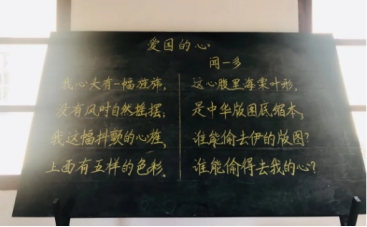 爱国的心
闻一多
我心头有一幅旌旆,
没有风时自然摇摆;
我这幅抖颤的心旌,
上面有五样的色彩。
这心腹里海棠叶形,
是中华版图底缩本;
谁能偷去伊的版图?
谁能偷得去我的心?